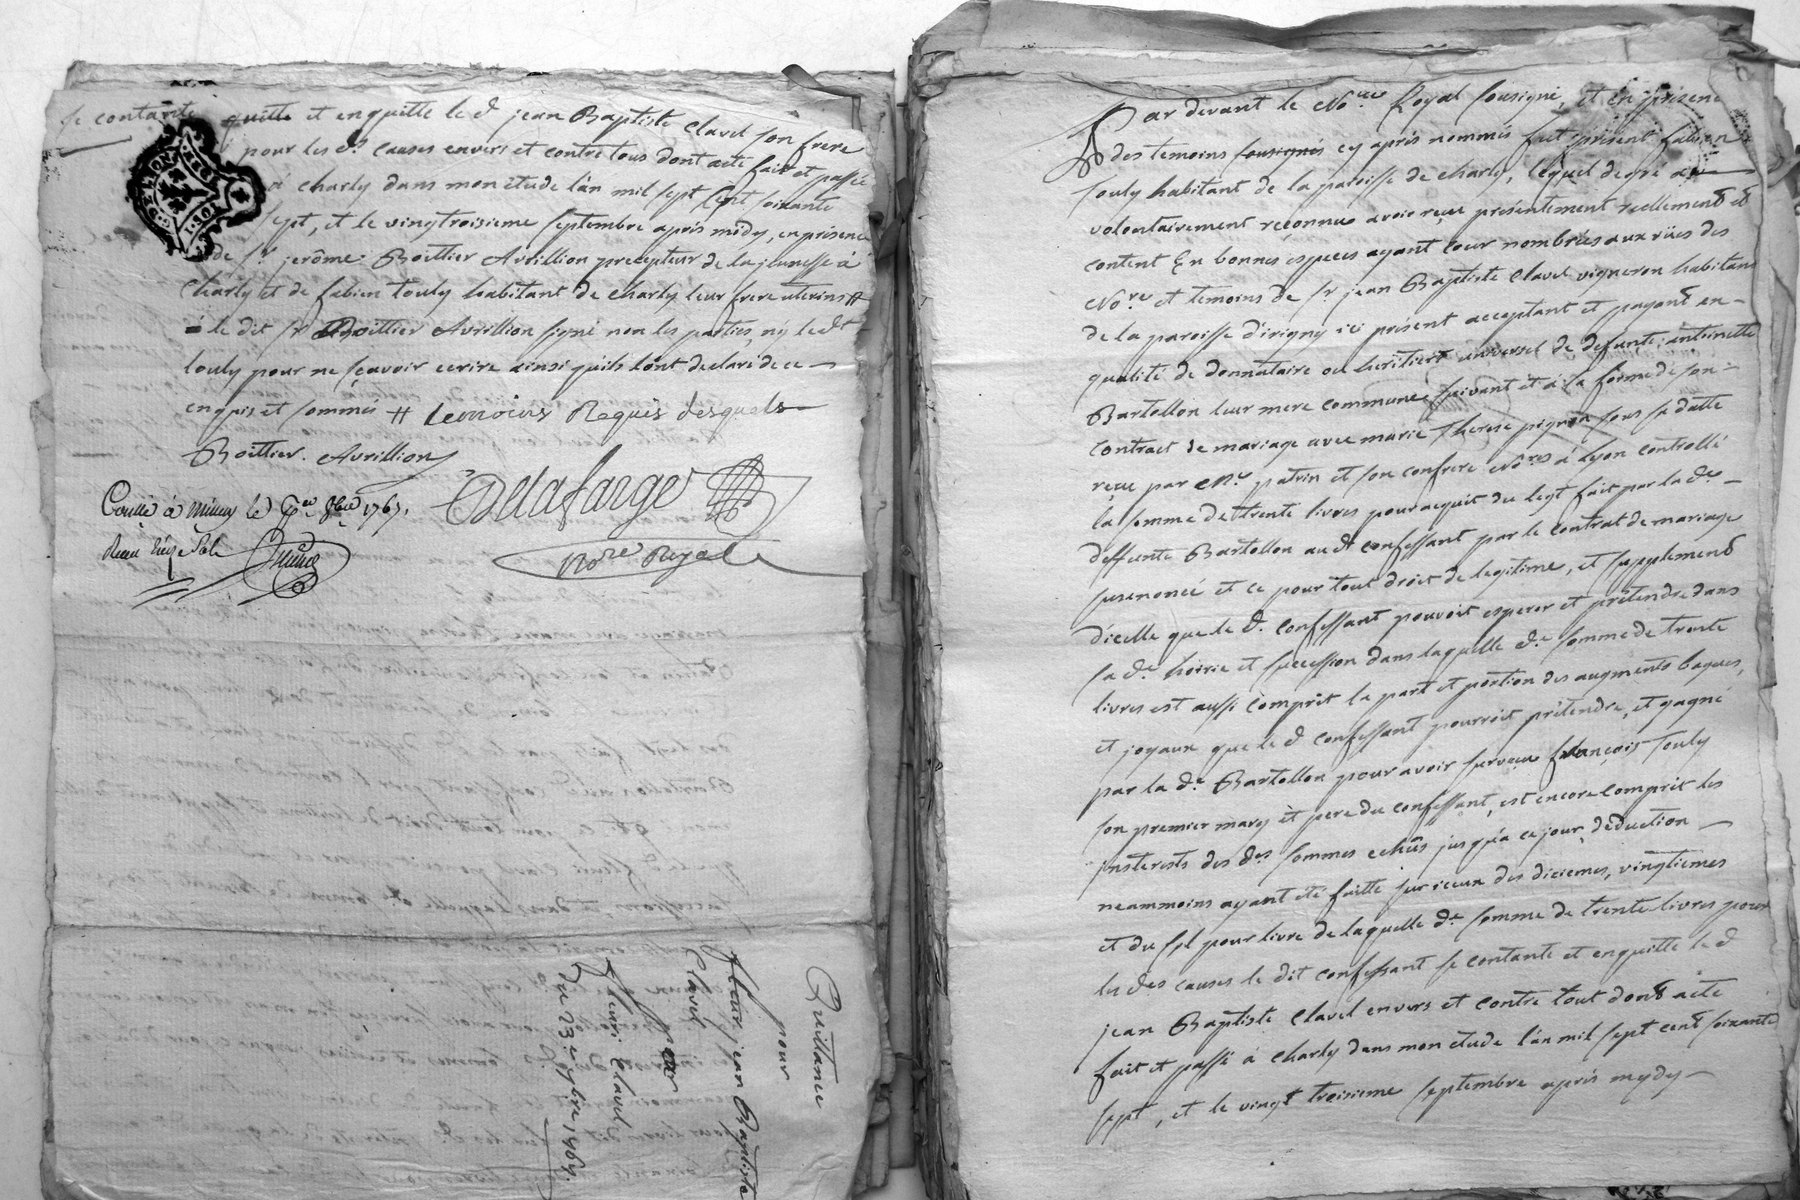 se contante quitte et enquitte le d. jean Baptiste Clavel son frere
pour les ds. causes envers et contre tous dont acte fait et passé
á charly dans mon etude l'an mil sept cent soixante
sept, et le vingtroisieme septembre aprés midy, en présence
de sr. jerôme Boittier Avrillion precepteur de la jeunesse á
charly et de fabien touly habitant de charly leur frere uterins #
le dit sr Boittier Avrillion signé non les parties, ny le dt
touly pour ne sçavoir ecrire ainsi qu'ils l'ont declaré de ce
enquis et sommés # temoins Requis desquels
Boittier. Avrillion
Delafarge
Nore Royal
Conllé á Millery le 1767.
Reçu treize sols
Quittance
pour
sieur jean Baptiste
Clavel
par
fleuri Clavel
Du 23e. 7bre. 1767.
Par devant le Nore Royal sousigné, et en présence
des temoins sousignés cy aprés nommés fut présent fabien
touly habitant de la paroisse de charly, lequel de gré á
volontairement reconnue avoir reçue présentement reellement et
content En bonnes especes ayant cour nombrées aux vües des
Nore. et temoins de sr jean Baptiste Clavel vigneron habitant
de la paroisse d'irigny ici présent acceptant et payant en
qualité de donnataire ou heritiere universel de defunte antoinette
Bartollon leur mere commune suivant et á la forme de son
contract de mariage avec marie therese pignon sous sa datte
reçue par Me. patrin et son confrere Nores á Lyon controllé
la somme de trente livres pour acquit du legt fait par la de
deffunte Bartollon au dt confessant par le contrat de mariage
susenoncé et ce pour tout droit de legitime, et supplement
d'icelle que le d. confessant pouvoit esperer et prétendre dans
sa de. hoirie et succession dans laquelle de. somme de trente
livres est aussi comprit la part et portion des augments bagues,
et joyaux que le d. confessant pourroit prétendre, et gagné
par la de. Bartollon pour avoir survecue françois touly
son premier mary et pere du confessant, est encore comprit les
insterests des des sommes echûs jusqu'á ce jour, déduction
neammoins ayant été faitte sur iceux des dixiemes, vingtiemes
et du sol pour livre de laquelle de. somme de trente livres pour
les des causes le dit confessant se contante et enquitte le d.
jean Baptiste Clavel envers et contre tout dont acte
fait et passé á charly dans mon etude l'an mil sept cent soixante
sept, et le vingt troisieme septembre aprés mydy